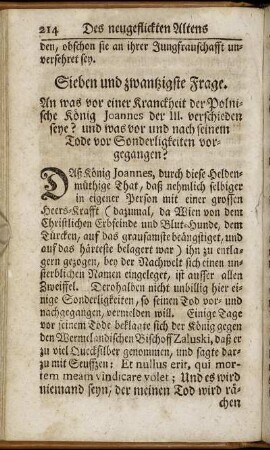 214 Des neugeflickten Altens
den, obschon sie an ihrer Jungfrauschafft un-
versehret sey.
Sieben und zwantzigste Frage.
An was vor einer Kranckheit der Polni-
sche König Joannes der III. verschieden
seye? und was vor und nach seinem
Tode vor Sonderligkeiten vor-
gegangen?
DAß König Joannes, durch diese Helden-
müthige That, daß nehmlich selbiger
in eigener Person mit einer grossen
Heers-Krafft (dazumal, da Wien von dem
Christlichen Erbfeinde und Blut-Hunde, dem
Türcken, auf das grausamste beängstiget, und
auf das härteste belagert war) ihn zu entla-
gern gezogen, bey der Nachwelt sich einen un-
sterblichen Namen eingeleget, ist ausser allen
Zweiffel. Derohalben nicht unbillig hier ei-
nige Sonderligkeiten, so seinen Tod vor- und
nachgegangen, vermelden will. Einige Tage
vor seinem Tode beklagte sich der König gegen
den Wermelandischen Bischoff Zaluski, daß er
zu viel Quecksilber genommen, und sagte dar-
zu mit Seufftzen: Et nullus erit, qui mor-
tem meam vindicare volet; Und es wird
niemand seyn, der meinen Tod wird rä-
chen